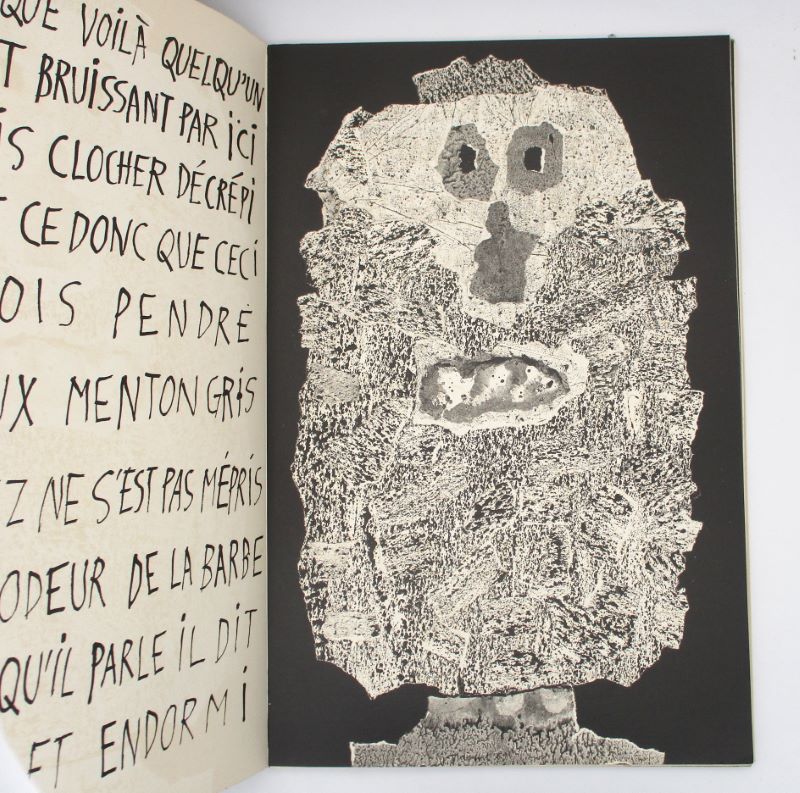 QUE VOILÀ QUELQU'UN
T BRUISSANT PAR IÇI
IS CLOCHER DÉCRÉPI
T CE DONC QUE CECI
OIS PENDRE
UX MENTON GRIS
EZ NE S'EST PAS MÉPRIS
ODEUR DE LA BARBE
QU'IL PARLE IL DIT
ET ENDORMI